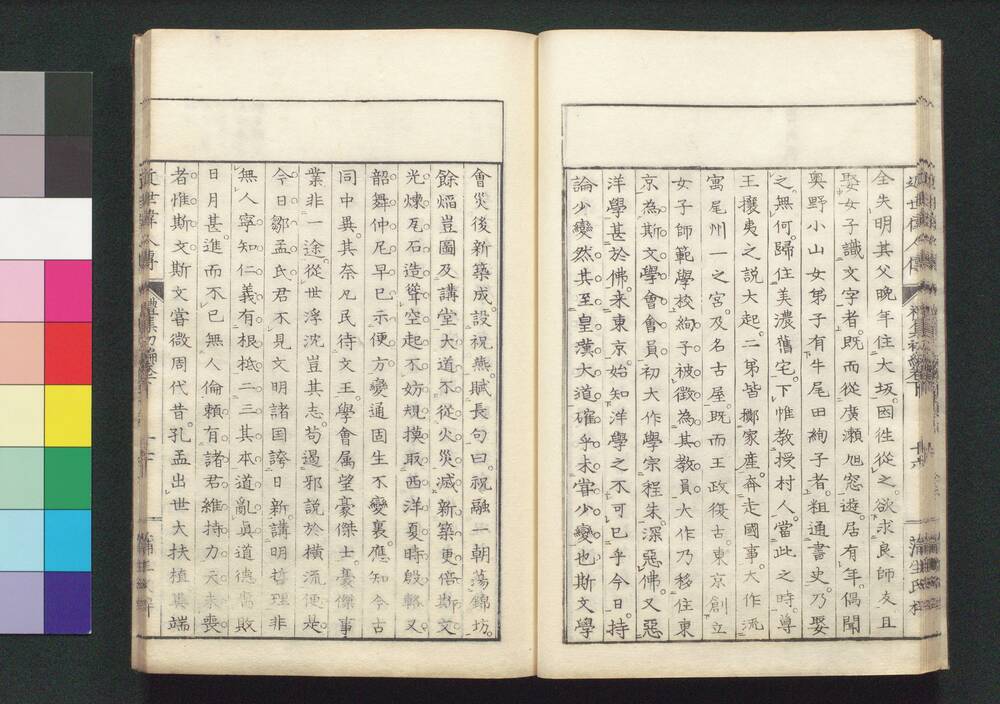 全失明其父晚年住大坂。因往從之。欲求良師友且
娶女子識文字者。既而從廣瀨旭窓遊。居有年。偶聞
奥野小山女弟子有牛尾田絢子者。粗通書史。乃娶
之。無何。歸住美濃舊宅。下帷教授村人。當此之時。尊
王攘夷之説大起。二弟皆擲家産。奔走國事。大作流
寓尾州一之宮。及名古屋。既而王政復古。東京創立
女子師範學校。絢子被徵為其教員。大作乃移住東
京。為斯文學會會員。初大作學宗程朱。深惡佛。又惡
洋學甚於佛。来東京。始知洋學之不可已乎今日。持
論少變。然其至皇漢大道。確乎未嘗少變也。斯文學
會災後新築成。設祝燕。賦長句曰。祝融一朝蕩錦坊。
餘焔豈圖及講堂。大道不從火災滅。新築更倍斯文
光。煉瓦石造聳空起。不妨規摸取西洋。夏時殷輅又
韶舞。仲尼早已示便方。變通固生不變裏。應知今古
同中異。其奈凡民待文王。學會属望豪傑士。豪傑事
業非一途。從世浮沈豈其志。苟遏邪説於橫流。便是
今日鄒孟氏。君不見文明諸国誇日新。講明哲理非
無人。寧知仁義有根柢。二三其本道亂真。道德
日月甚。進而不已無人倫。頼有諸君維持力。天未喪
者惟斯文。斯文嘗微周代昔。孔孟出世大扶植。異端
近世偉人傳
禮集初編卷下